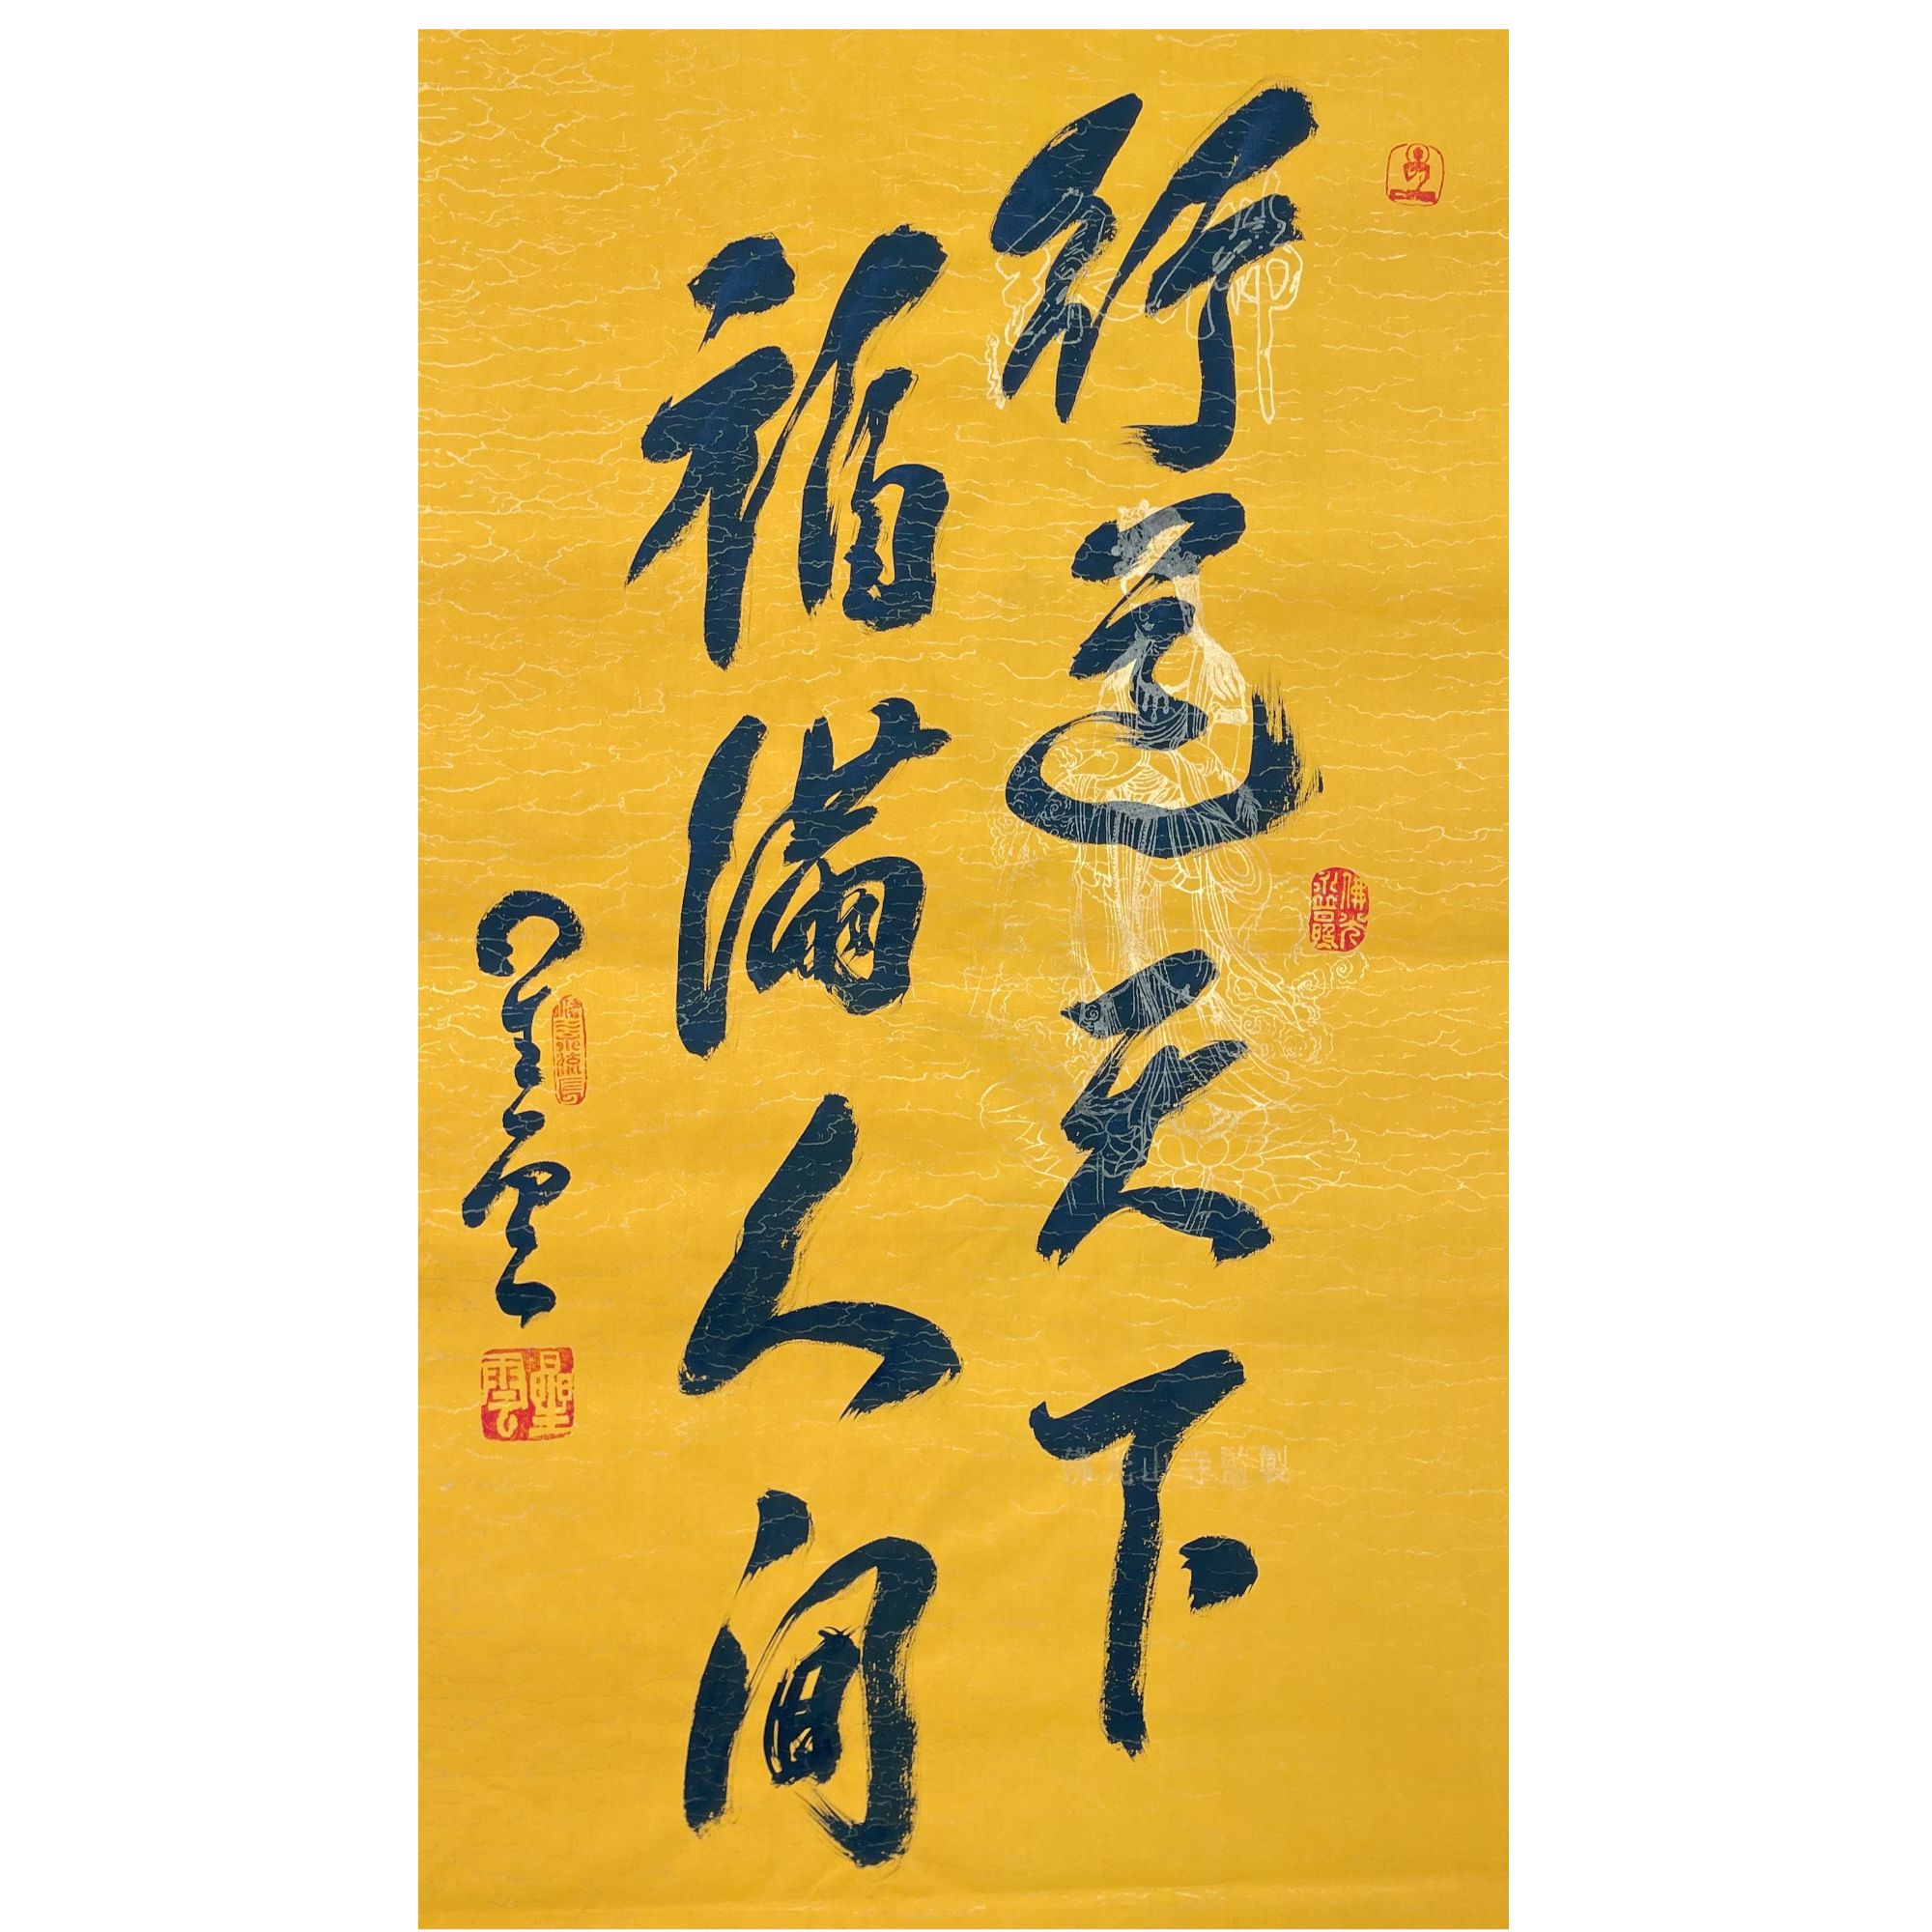 行道天下
福滿人間
星雲
星雲
佛光
佛光山寺監製